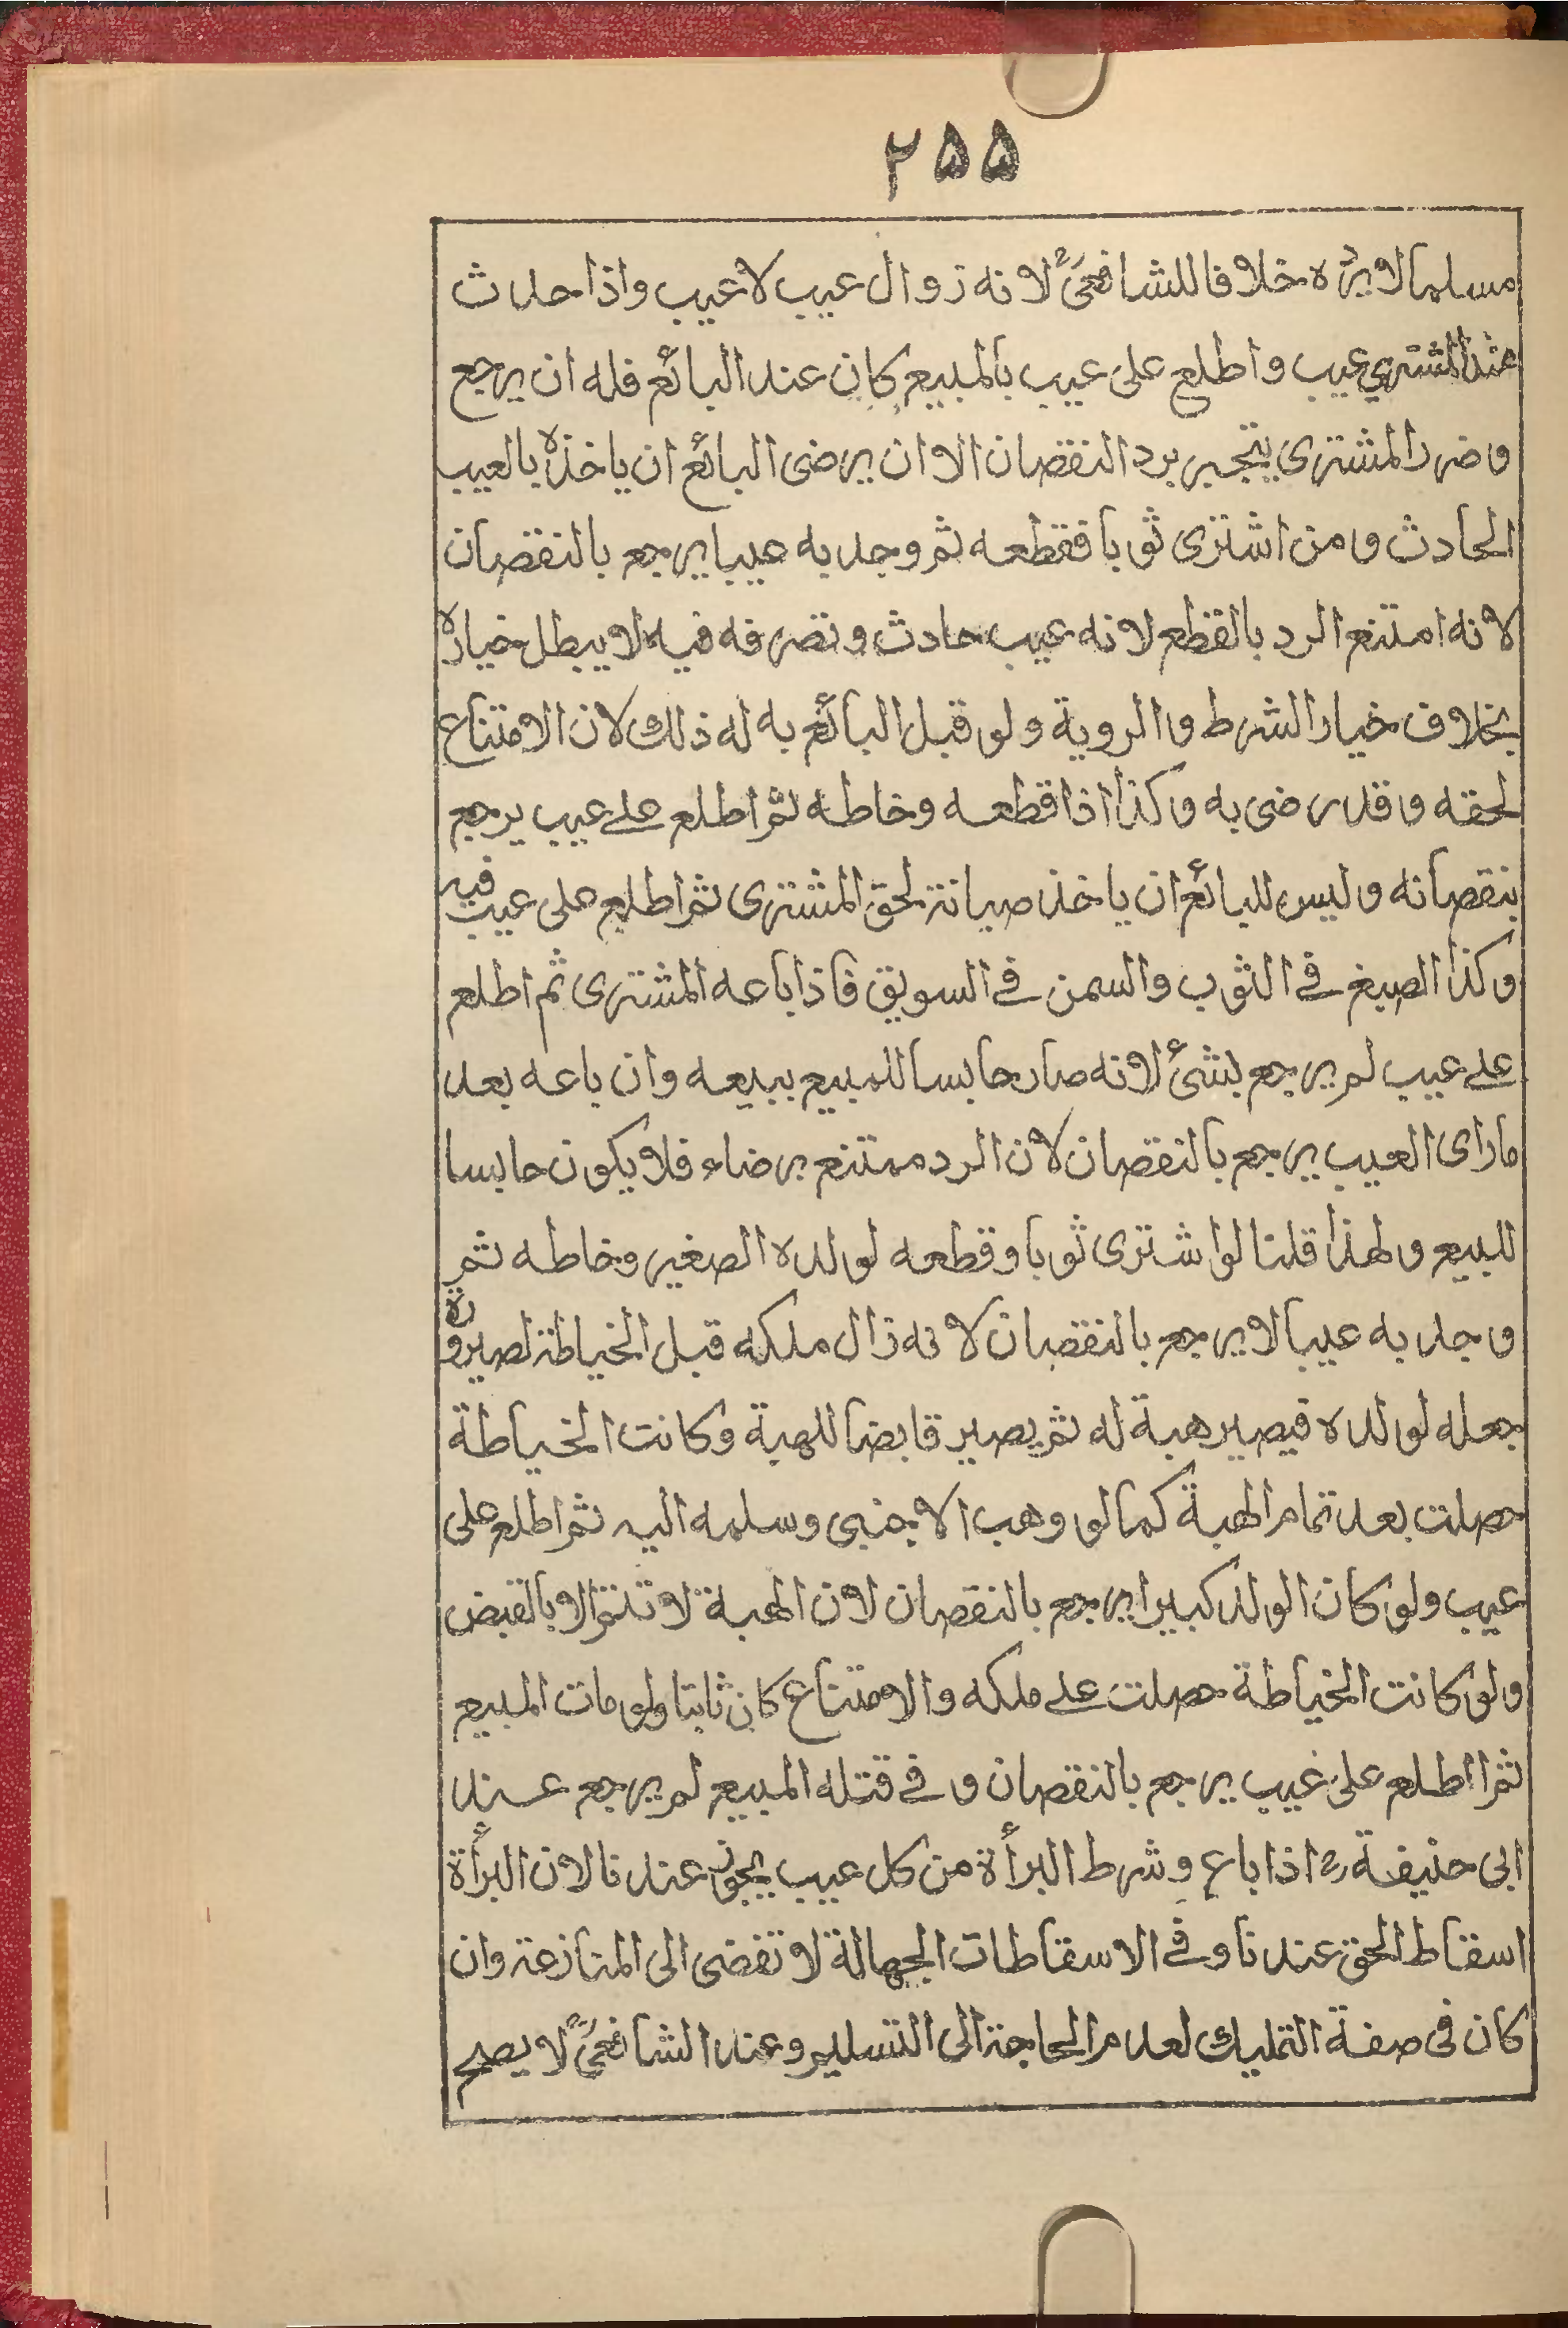 ۲۵۵
مسلما لا يرده خلافا للشافعي لانه زوال عيب لا عيب واذا حدث
عند المشتري عيب واطلع على عيب بالمبيع كان عند البائع فله ان يرجع
وضرر المشترى ينجبر برد النقصان الا ان يرضى البائع ان ياخذه بالعيب
الحادث ومن اشترى ثوبا فقطعه ثم وجد به عيبا يرجع بالنقصان
لانه امتنع الرد بالقطع لانه عيب حادث وتصرفه فيه لا يبطل خياره
بخلاف خيار الشرط والروية ولو قبل البائع به له ذلك لان الامتناع
لحقه وقد رضى به وكذا اذا قطعه وخاطه ثم اطلع على عيب يرجع
بنقصانه وليس للبائع ان ياخذ صيانة لحق المشترى ثم اطلع على عيب فيه
وكذا الصبغ فى الثوب والسمن فى السويق فاذا باعه المشترى ثم اطلع
على عيب لم يرجع بشئ لانه صار حابسا للمبيع ببيعه وان باعه بعد
ما راى العيب يرجع بالنقصان لان الرد ممتنع برضاء فلا يكون حابسا
للبيع ولهذا قلنا لو اشترى ثوبا وقطعه لولده الصغير وخاطه ثم
وجد به عيبا لا يرجع بالنقصان لانه زال ملكه قبل الخياطة لصيرورة
جعله لولده فيصير هبة له ثم يصير قابضا للهبة وكانت الخياطة
حصلت بعد تمام الهبة كما لو وهب الاجنبى وسلمه اليه ثم اطلع على
عيب ولو كان الولد كبيرا يرجع بالنقصان لان الهبة لا تتم الا بالقبض
ولو كانت الخياطة حصلت على ملكه والامتناع كان ثابتا ولو مات المبيع
ثم اطلع على عيب يرجع بالنقصان وفى قتله المبيع لم يرجع عند
ابى حنيفة رح اذا باع وشرط البرأة من كل عيب يجوز عندنا لان البرأة
اسقاط الحق عندنا وفى الاسقاطات الجهالة لا تفضى الى المنازعة وان
كان فى صفة التمليك لعدم الحاجة الى التسليم وعند الشافعي لا يصح